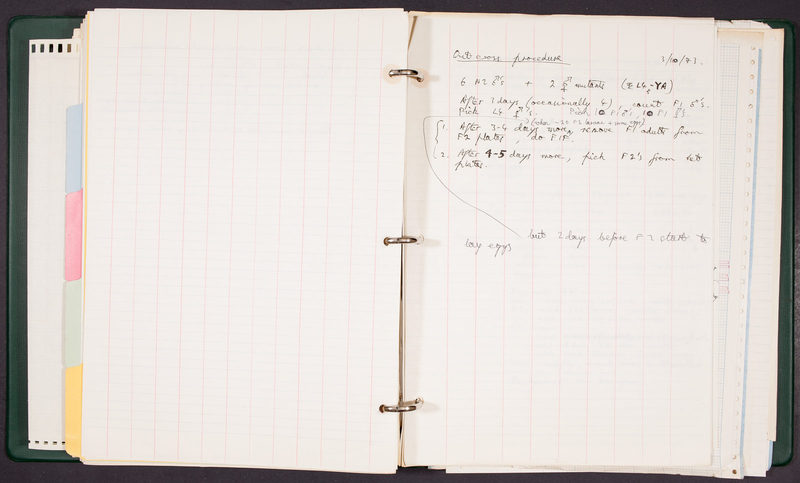 Out cross procedure 3/10/73.
6 N2 ♂'s + 2 ⚥ mutants (L4s-YA)
After 3 days (occasionally 4) count F1 ♂'s.
Pick L4 ⚥'s. Pick 10 F1 ♂'s, 10 F1 ⚥'s.
(when ~30 F2 larvae + some eggs)
1. After 3-4 days more, remove F1 adults from
F2 plates, do F1F.
2. After 4-5 days more, pick F2's from
plates.
but 2 days before F2 starts to
lay eggs